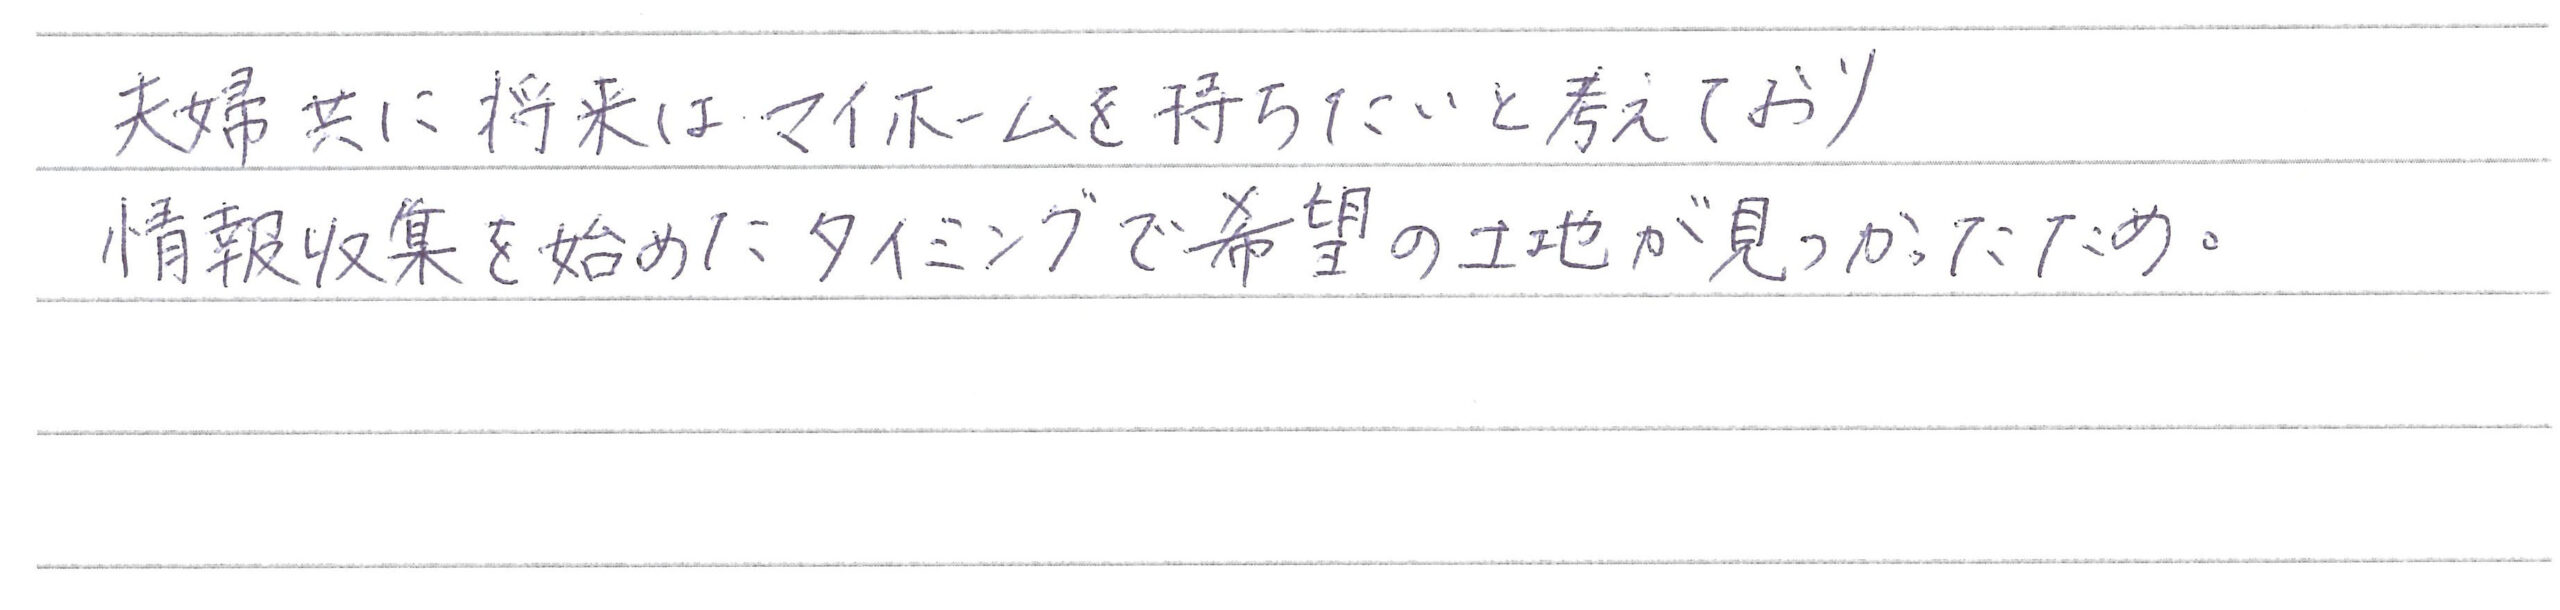 夫婦共に将来はマイホームを持ちたいと考えており
情報収集を始めたタイミングで希望の土地が見つかったため。